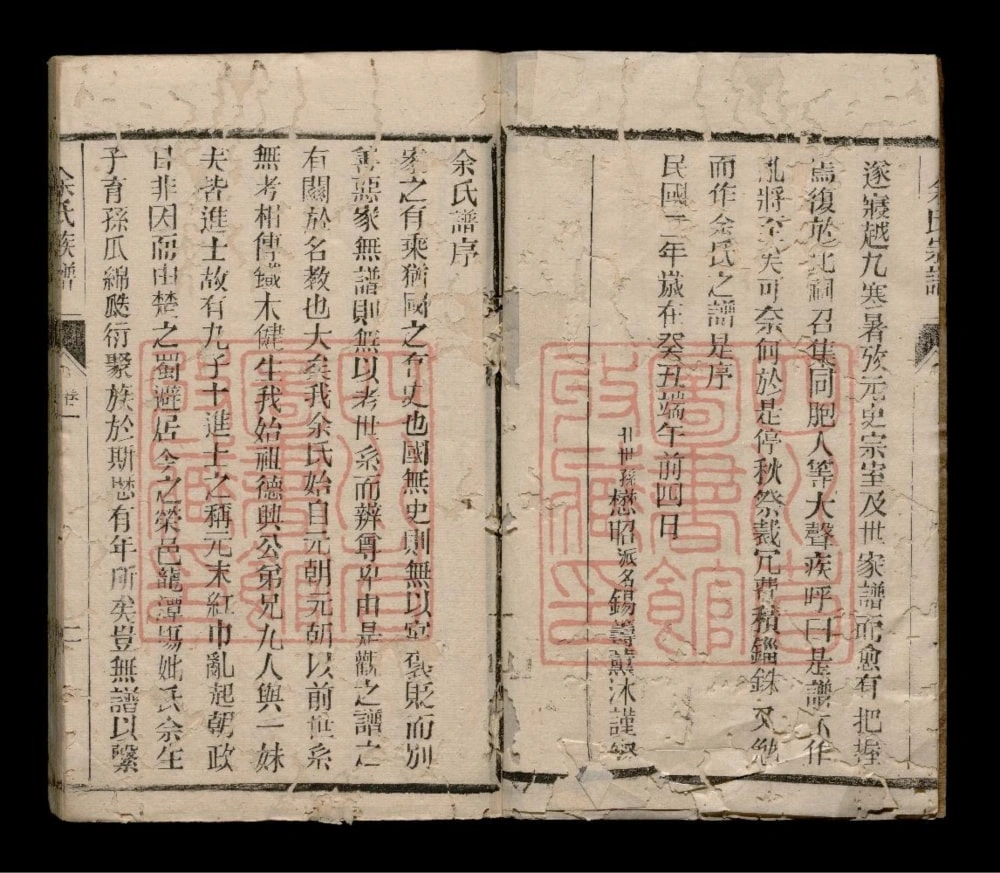 余氏宗譜
遂寢越九寒暑攷元史宗室及世家譜而愈有把握
焉復於北祠召集同胞人等大聲疾呼曰是譜不作
亂將至矣可奈何於是停秋祭裁冗費積錙銖又
而作余氏之譜是序
民國二年歲在癸丑端午前四日
廿世孫懋昭派名錫壽薰沐謹
余氏譜序
家之有乘猶國之有史也國無史則無以定褒貶而別
善惡家無譜則無以考世系而辨尊卑由是觀之譜之
有關於名教也大矣我余氏始自元朝元朝以前世系
無考相傳鐵木健生我始祖德興公弟兄九人與一妹
夫皆進士故有九子十進士之稱元末紅巾亂起朝政
日非因而由楚之蜀避居今之榮邑龍潭塲妣氏余生
子育孫瓜綿瓞衍聚族於斯歷有年所矣豈無譜以繫
余氏族譜
卷一
一
四川省圖書館收藏印